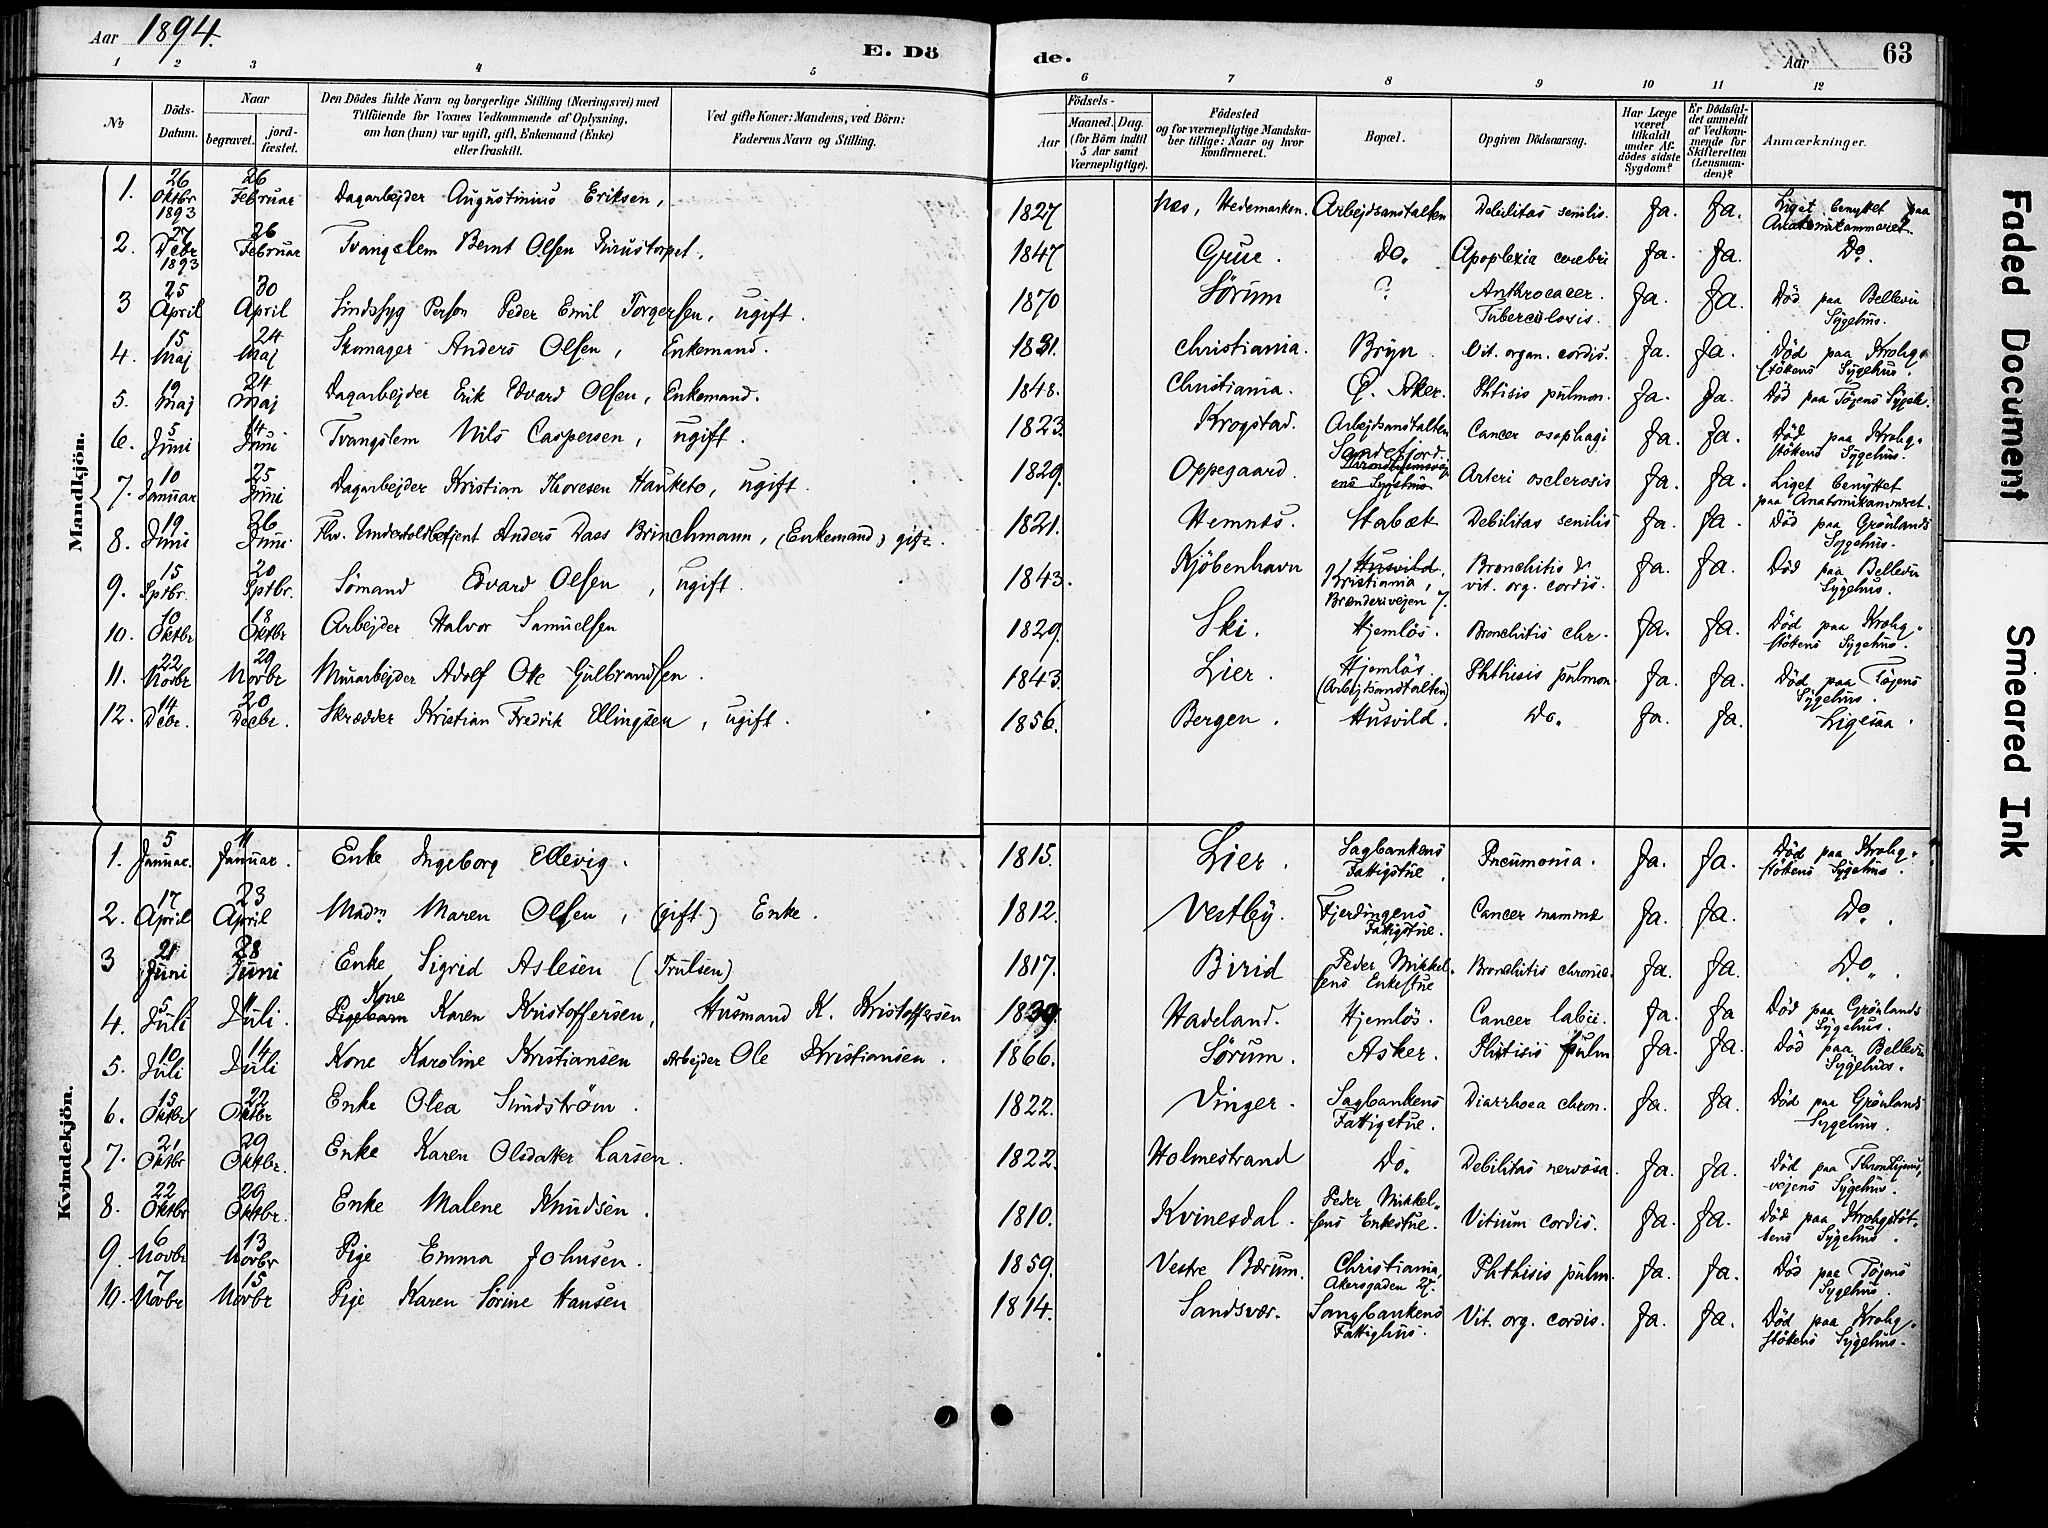 Aar 1894.
E. Dö
de.
Aar
63
1 2 3 4 5
6 7 8 9 10 11 12
№
Döds-Datum.
Naar
begravet.
jord-fæstet.
Den Dödes fulde Navn og borgerlige Stilling (Næringsvei) med
Tilföiende for Voxnes Vedkommende af Oplysning,
om han (hun) var ugift, gift, Enkemand (Enke)
eller fraskilt.
Ved gifte Koner: Mandens, ved Börn:
Faderens Navn og Stilling.
Födsels-
Aar
Maaned. Dag.
(for Börn indtil
5 Aar samt
Værnepligtige).
Födested
og for værnepligtige Mandska-
ber tillige: Naar og hvor
Konfirmeret.
Bopæl.
Opgiven Dödsaarsag.
Har Læge
været
tilkaldt
under Af-
dödes sidste
Sygdom?
Er Dödsfal-
det anmeldt
af Vedkom-
mende for
Skifteretten
(Lensman-
den)?
Anmærkninger.
Mandkjön.
1. 26 Oktbr 1893 26 Februar Dagarbejder Augustinius Eriksen, 1827 Næs, Hedemarken. Arbejdsanstalten Debilitas senilis. Ja. Ja. Liget benyttet paa Anatomikammeret.
2. 27 Debr 1893 26 Februar Tvangslem Bernt Olsen 1847 Grue. Do. Apoplexia cerebri Ja. Ja. Do.
3 25 April 30 April Sindssyg Person Peder Emil Torgersen, ugift. 1870 Sørum ? Anthrocacer. Tuberculosis. Ja. Ja. Død paa Bellevu Sygehus.
4. 15 Maj 24 Maj Skomager Anders Olsen, Enkemand. 1831. Christiania. Bryn. Vit. organ. cordis. Ja. Ja. Død paa Krohg-støtens Sygehus.
5. 19 Maj 24 Maj Dagarbejder Erik Edvard Olsen, Enkemand. 1848. Christiania. Ø. Aker. Phtisis pulmon. Ja. Ja. Død paa Tøjens Sygeh.
6. 5 Juni 14 Juni Tvangslem Nils Caspersen, ugift. 1823. Krogstad. Arbejdsanstalten Cancer osophagi Ja. Ja. Død paa Krohg-støtens Sygehus.
7. 10 Januar 25 Juni Dagarbejder Kristian Thoresen Hauketo, ugift. 1829. Oppegaard. Sandefjord. Trondhjemsvej ens Sygehus Arteri osclerosis Ja. Ja. Liget benyttet paa Anatomikammeret.
8. 19 Juni 26 Juni Fhv. Undertoldbetjent Anders Dass Brinchmann, (Enkemand) gift. 1821. Hemnes. Stabæk Debilitas senilis Ja. Ja. Død paa Grønlands Sygehus.
9. 15 Sptbr. 20 Sptbr. Sømand Edvard Olsen, ugift. 1843. Kjøbenhavn Husvild. Kristiania, Brænderivejen 7. Bronchitis & vit. org. cordis. Ja. Ja. Død paa Bellevu Sygehus.
10. 10 Oktbr 18 Oktbr Arbejder Halvor Samuelsen 1829. Ski. Hjemløs. Bronchitis chr. Ja. Ja. Død paa Krohg-støtens Sygehus.
11. 22 Novbr 29 Novbr Murarbejder Adolf Ole Gulbrandsen. 1843. Lier. Hjemløs. (Arbejdsanstalten) Phthisis pulmon Ja. Ja. Død paa Tøjens Sygehus.
12. 14 Debr. 20 Decbr. Skrædder Kristian Fredrik Ellingsen, ugift. 1856. Bergen. Husvild. Do. Ja. Ja. Ligesaa.
Kvindekjön.
1. 5 Januar. 11 Januar. Enke Ingeborg Ellevig. 1815. Lier. Sagbankens Fattigstue. Pneumonia. Ja. Ja. Død paa Krohg-støttens Sygehus.
2. 17 April 23 April Madm Maren Olsen, (gift) Enke. 1812. Vestby. Fjerdingens Fattigstue. Cancer mammæ Ja. Ja. Do.
3 21 Juni 28 Juni Enke Sigrid Aslesen (Trulsen) 1817. Birid Peder Mikkel-sens Enkestue Bronchitis chronic. Ja. Ja. Do.
4. 5 Juli 11 Juli. Pigebarn Kone Karen Kristoffersen, Husmand K. Kristoffersen 1839. Hadeland. Hjemløs. Cancer labii. Ja. Ja. Død paa Grønlands Sygehus.
5. 10 Juli 14 Juli Kone Karoline Kristiansen Arbejder Ole Kristiansen. 1866. Sørum. Asker. Phtisis pulm Ja. Ja. Død paa Bellevu Sygehus.
6. 15 Oktbr 22 Oktbr Enke Olea Sundstrøm. 1822. Vinger. Sagbankens Fattigstue. Diarrhoea chron. Ja. Ja. Død paa Grønlands Sygehus.
7. 21 Oktbr 29 Oktbr. Enke Karen Olsdatter Larsen. 1822. Holmestrand Do. Debilitas nervosa. Ja. Ja. Død paa Throndhjems-vejens Sygehus.
8. 22 Oktbr 29 Oktbr. Enke Malene Knudsen. 1810. Kvinesdal. Peder Mikkel-sens Enkestue. Vitium cordis. Ja. Ja. Død paa Krohgstøt-tens Sygehus.
9. 6 Novbr 13 Novbr Pige Emma Johnsen. 1859. Vestre Bærum. Christiania, Akersgaden 27. Phthisis pulm. Ja. Ja. Død paa Tøjens Sygehus.
10. 7 Novbr 15 Novbr Pige Karen Sørine Hansen 1814. Sandsvær. Sangbankens Fattighus. Vit. org. cordis. Ja. Ja. Død paa Krohg-støtens Sygehus.
Faded Document
Smeared Ink